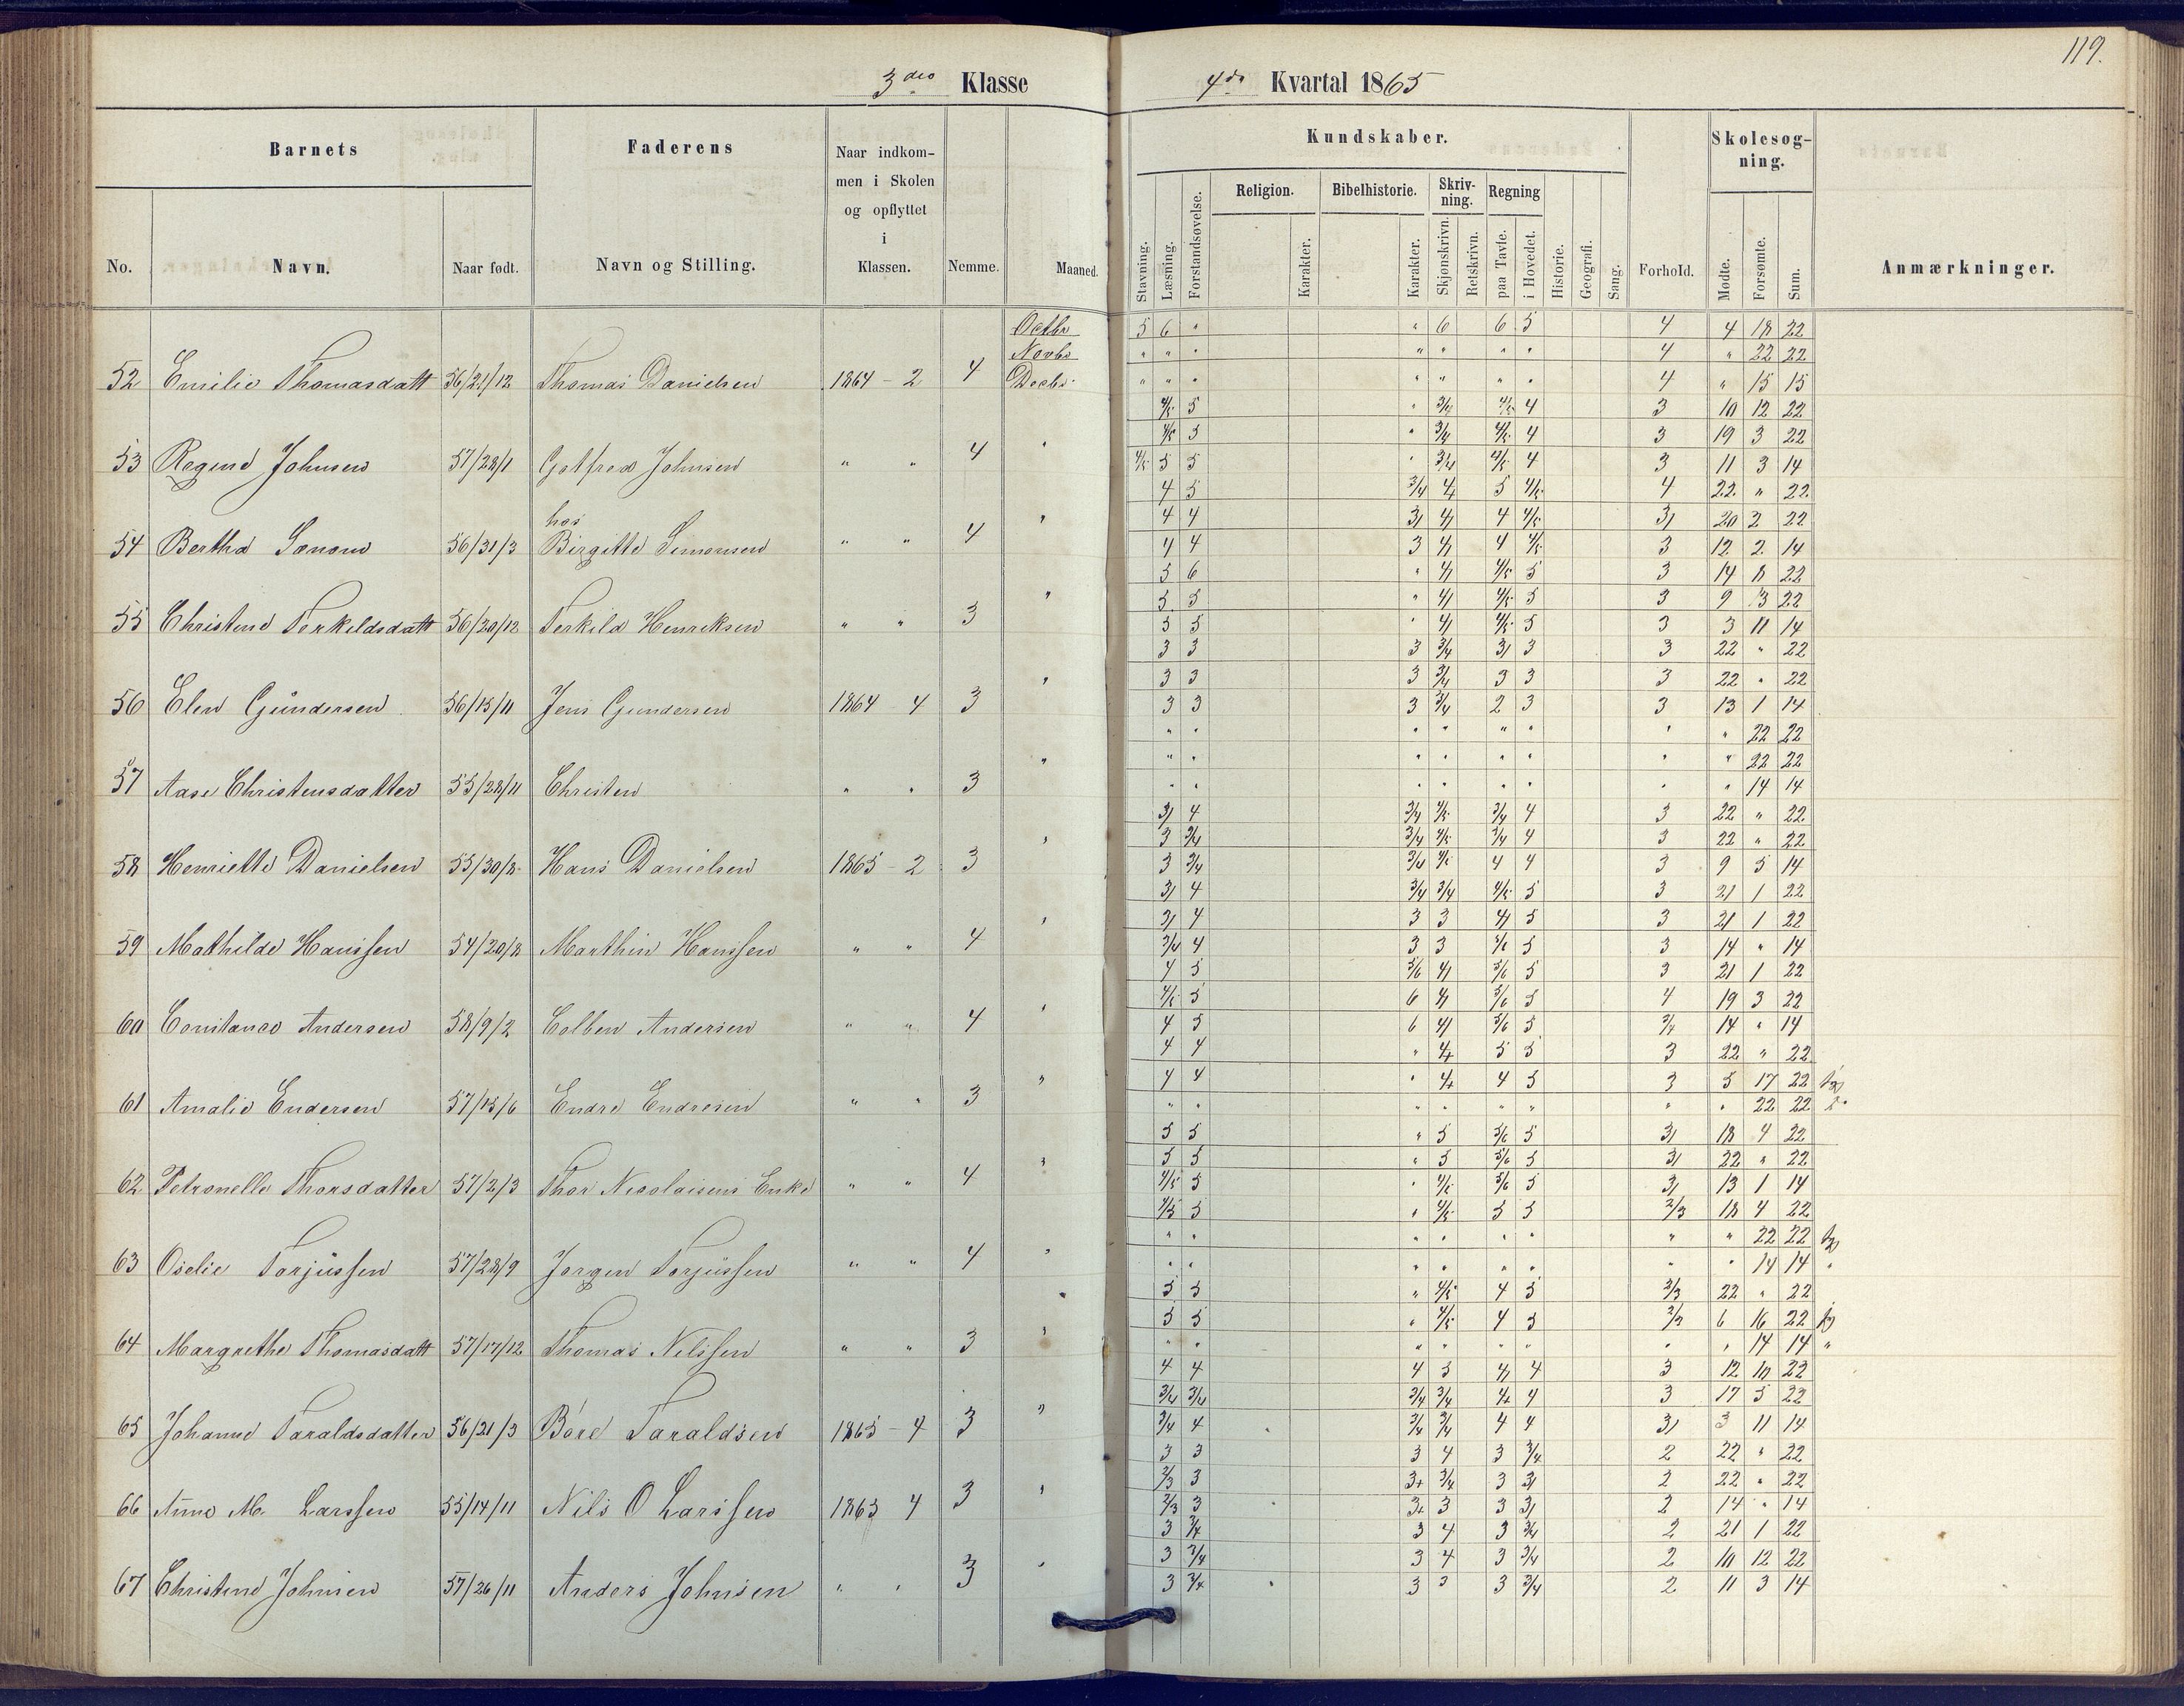 119.
3die Klasse 4de Kvartal 1865
Barnets Faderens Naar indkommen i Skolen og opflyttet i Klassen. Nemme. Maaned. Kundskaber. Forhold. Skolesøgning. Anmærkninger.
No. Navn. Naar født. Navn og Stilling.
Stavning. Læsning. Forstandsøvelse. Religion. Karakter. Bibelhistorie. Karakter. Skrivning. Skjønskrivn. Retskrivn. Regning paa Tavle. i Hovedet. Historie. Geografi. Sang. Mødte. Forsømte. Sum.
Octbr 5 6 " " 6 6 5 4 4 18 22
Novbr " " " " " " " 4 " 22 22
52 Emilie Thomasdatt 56/21/12 Thomas Danielsen 1864 - 2 4 Decbr " " " " " " " 4 " 15 15
4/5 5 " 3/4 4/5 4 3 10 12 22
4/5 5 " 3/4 4/5 4 3 19 3 22
53 Regine Johnsen 57/28/1 Gotfred Johnsen " " 4 " 4/5 5 5 " 3/4 4/5 4 3 11 3 14
4 5 3/4 4 5 4/5 4 22 " 22
hos 4 4 3/ 4/ 4 4/5 3/ 20 2 22
54 Bertha 56/31/3 Birgitte Simonsen " " 4 " 4 4 3 4/ 4 4/5 3 12 2 14
5 6 " 4/ 4/5 5 3 14 8 22
5 5 " 4/ 4/5 5 3 9 13 22
55 Christine Terkildsdatt 56/20/12 Terkild Henriksen " " 3 " 5 5 " 4/ 4/5 5 3 3 11 14
3 3 3 3/4 3/ 3 3 22 " 22
3 3 3 3/4 3 3 3 22 " 22
56 Elen Gundersen 56/15/11 Jens Gundersen 1864 - 4 3 " 3 3 3 3/4 2 3 3 13 1 14
" " " " " " " " 22 22
" " " " " " " " 22 22
57 Aase Christensdatter 55/28/11 Christen " " 3 " " " " " " " " " 14 14
3/ 4 3/4 4/5 3/4 4 3 22 " 22
3 3/4 3/4 4/5 3/4 4 3 22 " 22
58 Henriette Danielsen 55/30/8 Hans Danielsen 1865 - 2 3 " 3 3/4 3/4 4/5 4 4 3 9 5 14
3/ 4 3/4 3/4 4/5 5 3 21 1 22
3/ 4 3 3 4/ 5 3 21 1 22
59 Mathilde Hanssen 54/20/8 Marthin Hanssen " " 4 " 3/4 4 3 3 5 3 14 " 14
4 5 5/6 4/ 5/6 5 3 21 1 22
4/5 5 6 4/ 5/6 5 4 19 3 22
60 Constance Andersen 58/9/2 Colben Andersen " " 4 " 4 5 6 4/ 5/6 5 3/4 14 " 14
4 4 " 4+ 5 5 3 22 " 22
4 4 " 4+ 4 5 3 5 17 22
61 Amalie Endersen 57/15/6 Endre Endresen " " 3 " " " " " " " " " 22 22
5 5 " 5 5/6 5 3/ 18 4 22
5 5 " 5 5/6 5 3/ 22 " 22
62 Petronelle Thorsdatter 57/2/3 Thor Nicolaisens Enke " " 4 " 4/5 5 " 4/5 5/6 5 3/ 13 1 14
4/5 5 " 4/5 5 5 2/3 18 4 22
" " " " " " " " 22 22
63 Oselie Torjussen 57/28/9 Jørgen Torjussen " " 4 " " " " " " " " " 14 14 "
5 5 " 4/5 4 5 2/3 22 " 22
5 5 " 4/5 4 5 2/3 6 16 22
64 Margrethe Thomasdatt 57/17/12 Thomas Nilssen " " 3 " " " " " " " " " 14 14 "
4 4 4 5 4/ 4 3 12 10 22
3/4 3/4 3/4 3/4 4+ 4 3 17 5 22
65 Johanne Taraldsdatter 56/21/3 Bore Taraldsen 1865 - 4 3 " 3/4 4 3/4 3/4 4 4 3/ 3 11 14
3 3 3 4 3 3/4 2 22 " 22
2/3 3 3+ 3/4 3 3/ 2 22 " 22
66 Anne M. Larssen 55/14/11 Nils O Larssen 1865 4 3 " 2/3 3 3+ 3 3 3/ 2 14 " 14
3 3/4 3 4 3 3/4 2 21 1 22
3 3/4 3 4 3 3/4 2 10 12 22
67 Christine Johnsen 57/26/11 Anders Johnsen " " 3 " 3 3/4 3 3 3 3/4 2 11 3 14